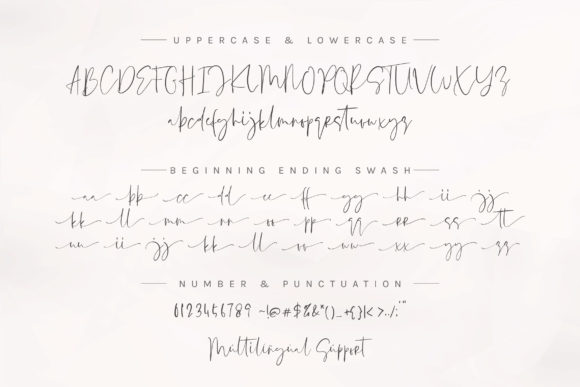 UPPERCASE & LOWERCASE
ABCDEFGHIJKLMNOPQRSTUVWXYZ
abcdefghijklmnopqrstuvwxyz
BEGINNING ENDING SWASH
aa bb cc dd ee ff gg hh ii jj
kk ll mm nn oo pp qq rr ss tt
uu ii jj kk ll oo ww xx yy zz
NUMBER & PUNCTUATION
0123456789 ~!@#$%&*()_+{}|<>.,/:'"
Multilingual Support